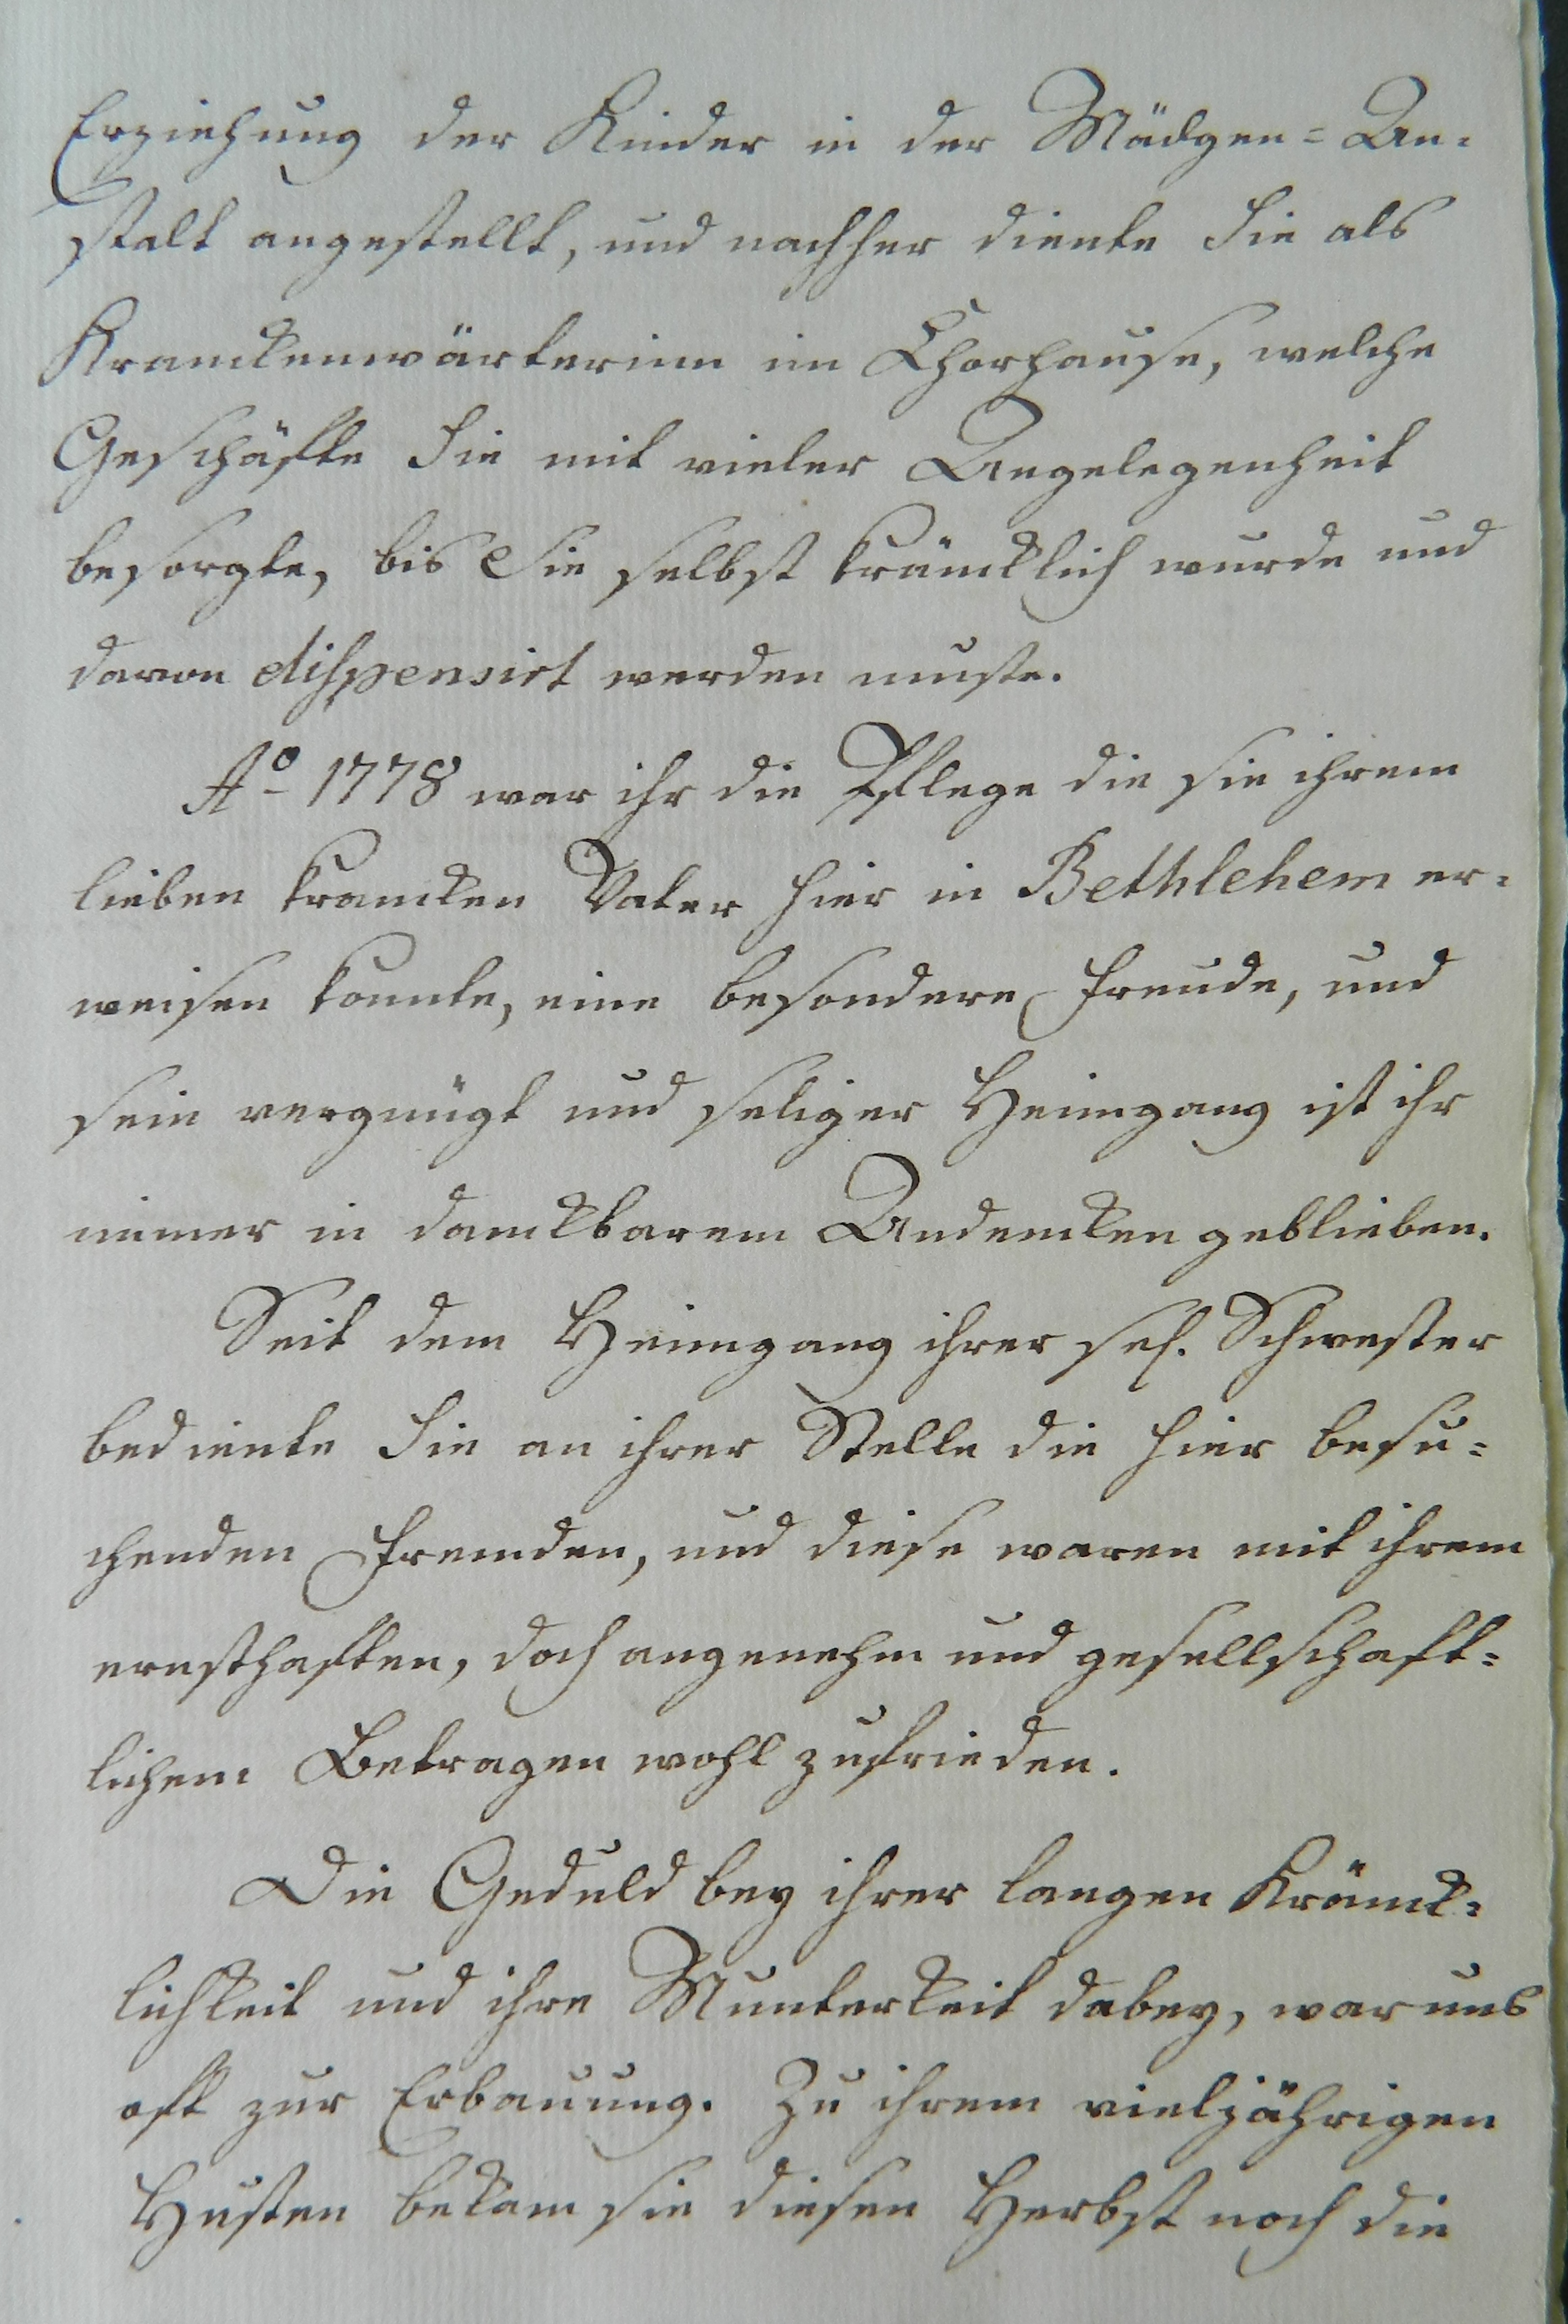 Erziehung der Kinder in der Mädgen=An=
stalt angestellt, und nachher diente Sie als
Kranckenwärterinn im Chorhause, welche
Geschäfte Sie mit vieler Angelegenheit
besorgte, bis Sie selbst kräncklich wurde und
davon dispensirt werden muste.
Aº 1778 war ihr die Pflege die sie ihrem
lieben krancken Vater hier in Bethlehem er=
weisen konnte, eine besondere Freude, und
sein vergnügt und seliger Heimgang ist ihr
immer in danckbarem Andencken geblieben.
Seit dem Heimgang ihrer sel. Schwester
bediente Sie an ihrer Stelle die hier besu=
chenden Fremden, und diese waren mit ihrem
ernsthaften, doch angenehm und gesellschaft=
lichem Betragen wohl zufrieden.
Die Geduld bey ihrer langen Kränck=
lichkeit und ihre Munterkeit dabey, war uns
oft zur Erbauung. Zu ihrem vieljährigen
Husten bekam sie diesen Herbst noch die